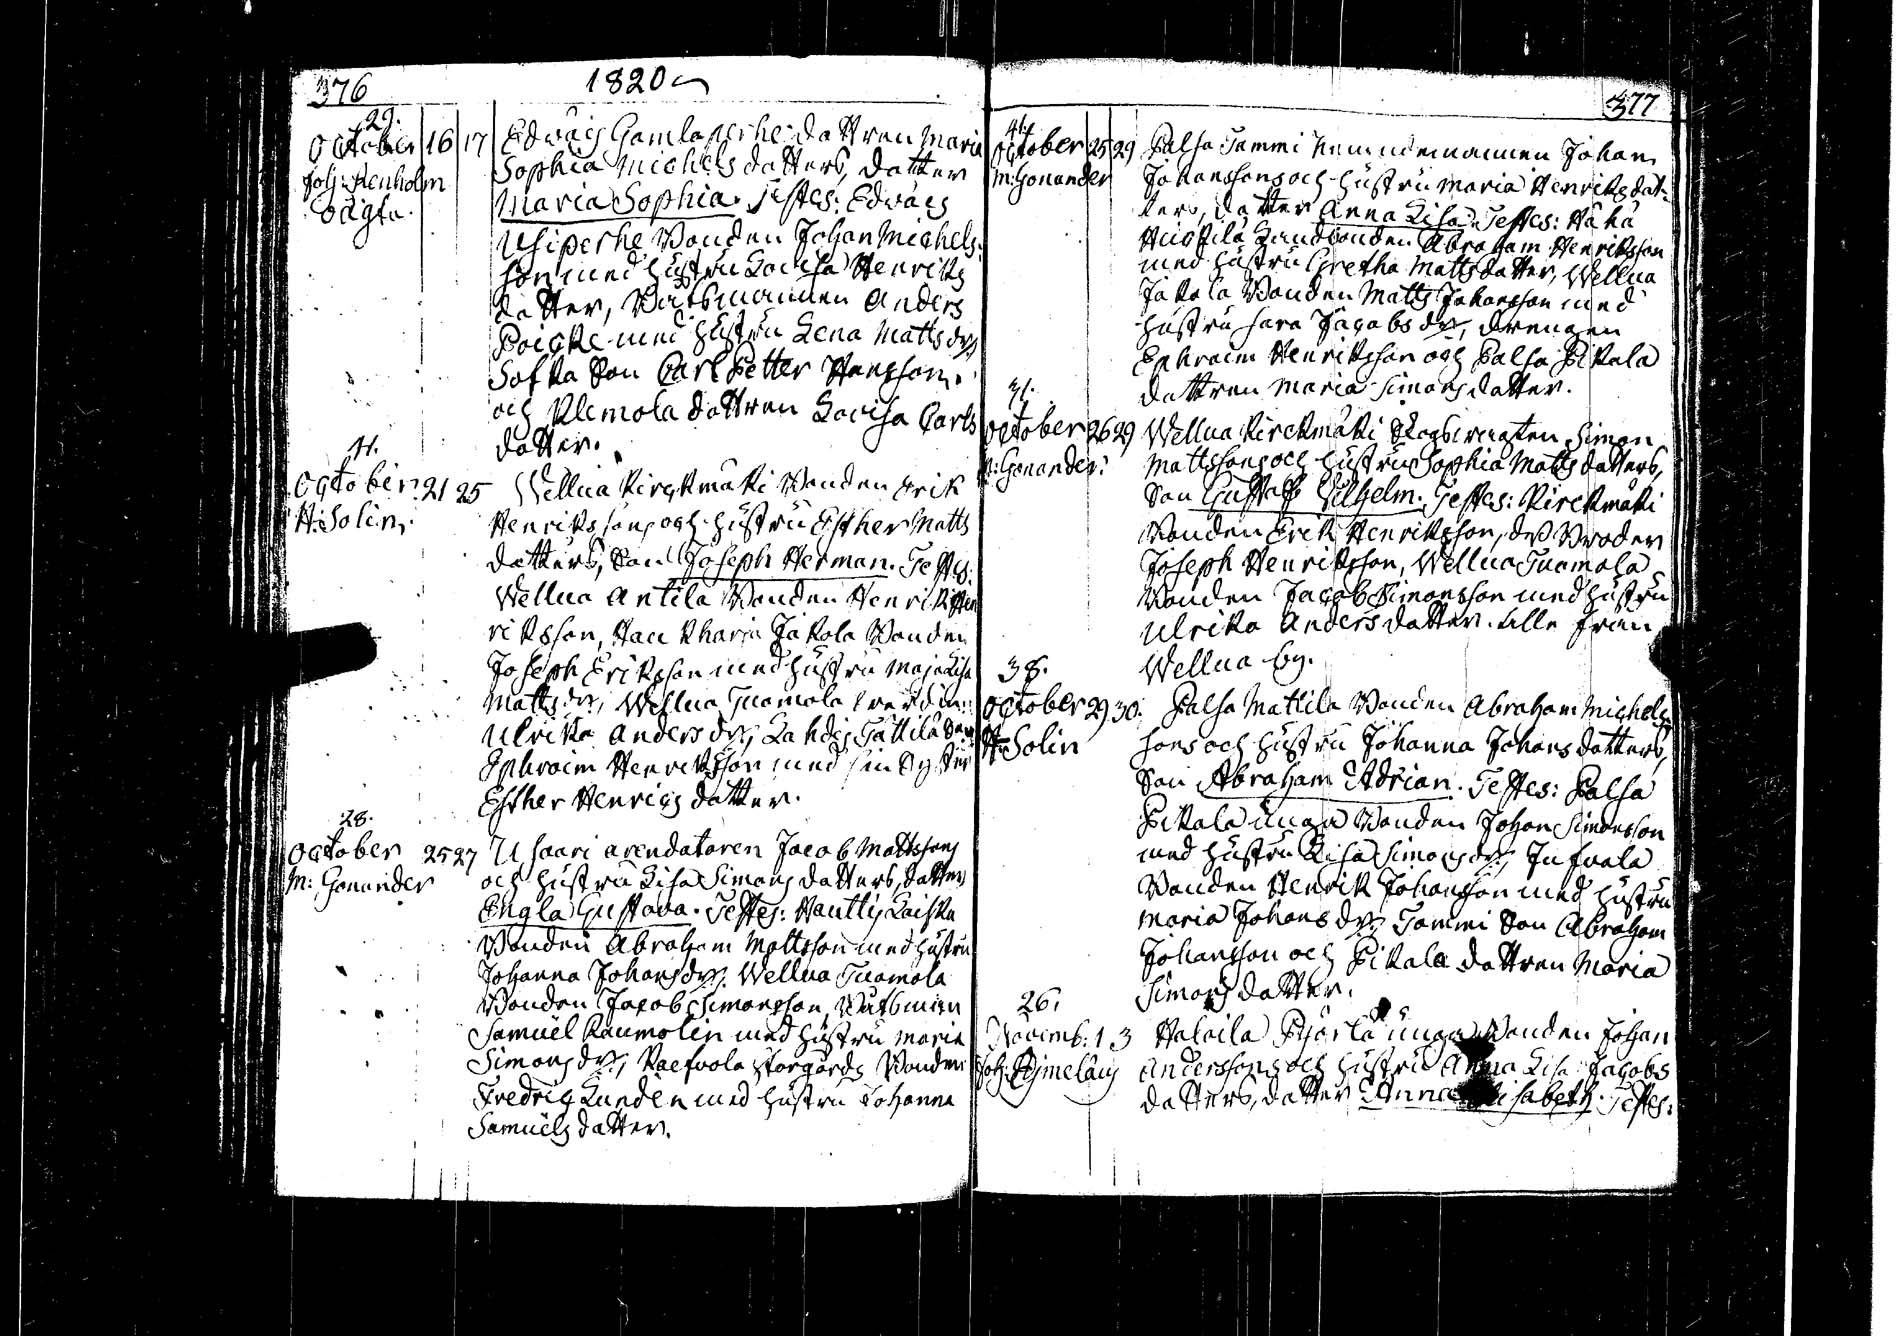 376
1820
29.
October 16 17 Edväis Gamlaperhe dottren Maria
Joh: Renholm Sophia Michels dotters, dotter
Vägfa. Maria Sophia. Testes: Edväis
Usiperhe Bonden Johan Michels-
son med hustru Lovisa Henriks
dotter, Båtsmannen Anders
Poicke med hustru Lena Matts dr,
Sofka Son Carl Petter Hansson
och Klemola dottren Lovisa Carls
dotter.
41.
October 21 25 Wellua Kirckmäki Bonden Erik
H: Solin. Henrikssons och hustru Esther Matts
dotters, Son Joseph Herman. Testes:
Wellua Antila Bonden Henrik Hen
riksson, Jakola Bonden
Joseph Eriksson med hustru Maja Lisa
Matts dr, Wellua Tuomola
Ulrika Anders dr, Lahdis Tattila Son
Ephraim Henriksson med sin Syster
Esther Henrics dotter.
28.
October 25 27 Usaari arendatoren Jacob Mattssons
M: Gonander och hustru Lisa Simons dotters, dotter
Engla Gustava. Testes: Hauttis Laiska
Bonden Abraham Mattsson med hustru
Johanna Johans dr, Wellua Tuomola
Bonden Jacob Simonsson, Båtsman
Samuel Raumolin med hustru Maria
Simons dr, Kaefvola Storgårds Bonden
Fredric Lundén med hustru Johanna
Samuels dotter.
377
41.
October 25 29 Palsa Tammi Nemndemannen Johan
M: Gonander Johanssons och hustru Maria Henriks dot-
ters, dotter Anna Lisa. Testes:
Landbonden Abraham Henriksson
med hustru Gretha Matts dotter, Wellua
Jakola Bonden Matts Johansson med
hustru Sara Jacobs dr, drengen
Ephraim Henriksson och Palsa Pikala
dottren Maria Simons dotter.
31.
October 26 29 Wellua Kirckmäki Skogsvagten Simon
M: Gonander. Mattssons och hustru Sophia Matts dotters,
Son Gustaf Vilhelm. Testes: Kirckmäki
Bonden Erik Henriksson, des Broder
Joseph Henriksson, Wellua Tuomola
Bonden Jacob Simonsson med hustru
Ulrika Anders dotter. alle från
Wellua by.
38.
October 29 30. Palsa Mattila Bonden Abraham Michels
H: Solin sons och hustru Johanna Johans dotters,
Son Abraham Adrian. Testes: Palsa
Pikala unga Bonden Johan Simonsson
med hustru Lisa Simons dr, Jufvala
Bonden Henrik Johansson med hustru
Maria Johans dr, Tammi Son Abraham
Johansson och Pikala dottren Maria
Simons dotter.
26.
Novemb: 1 3 Haloila Pjärlä unga Bonden Johan
Joh: Hjmelæus Anderssons och hustru Anna Lisa Jacobs
dotters, dotter Anna Elisabeth. Testes: